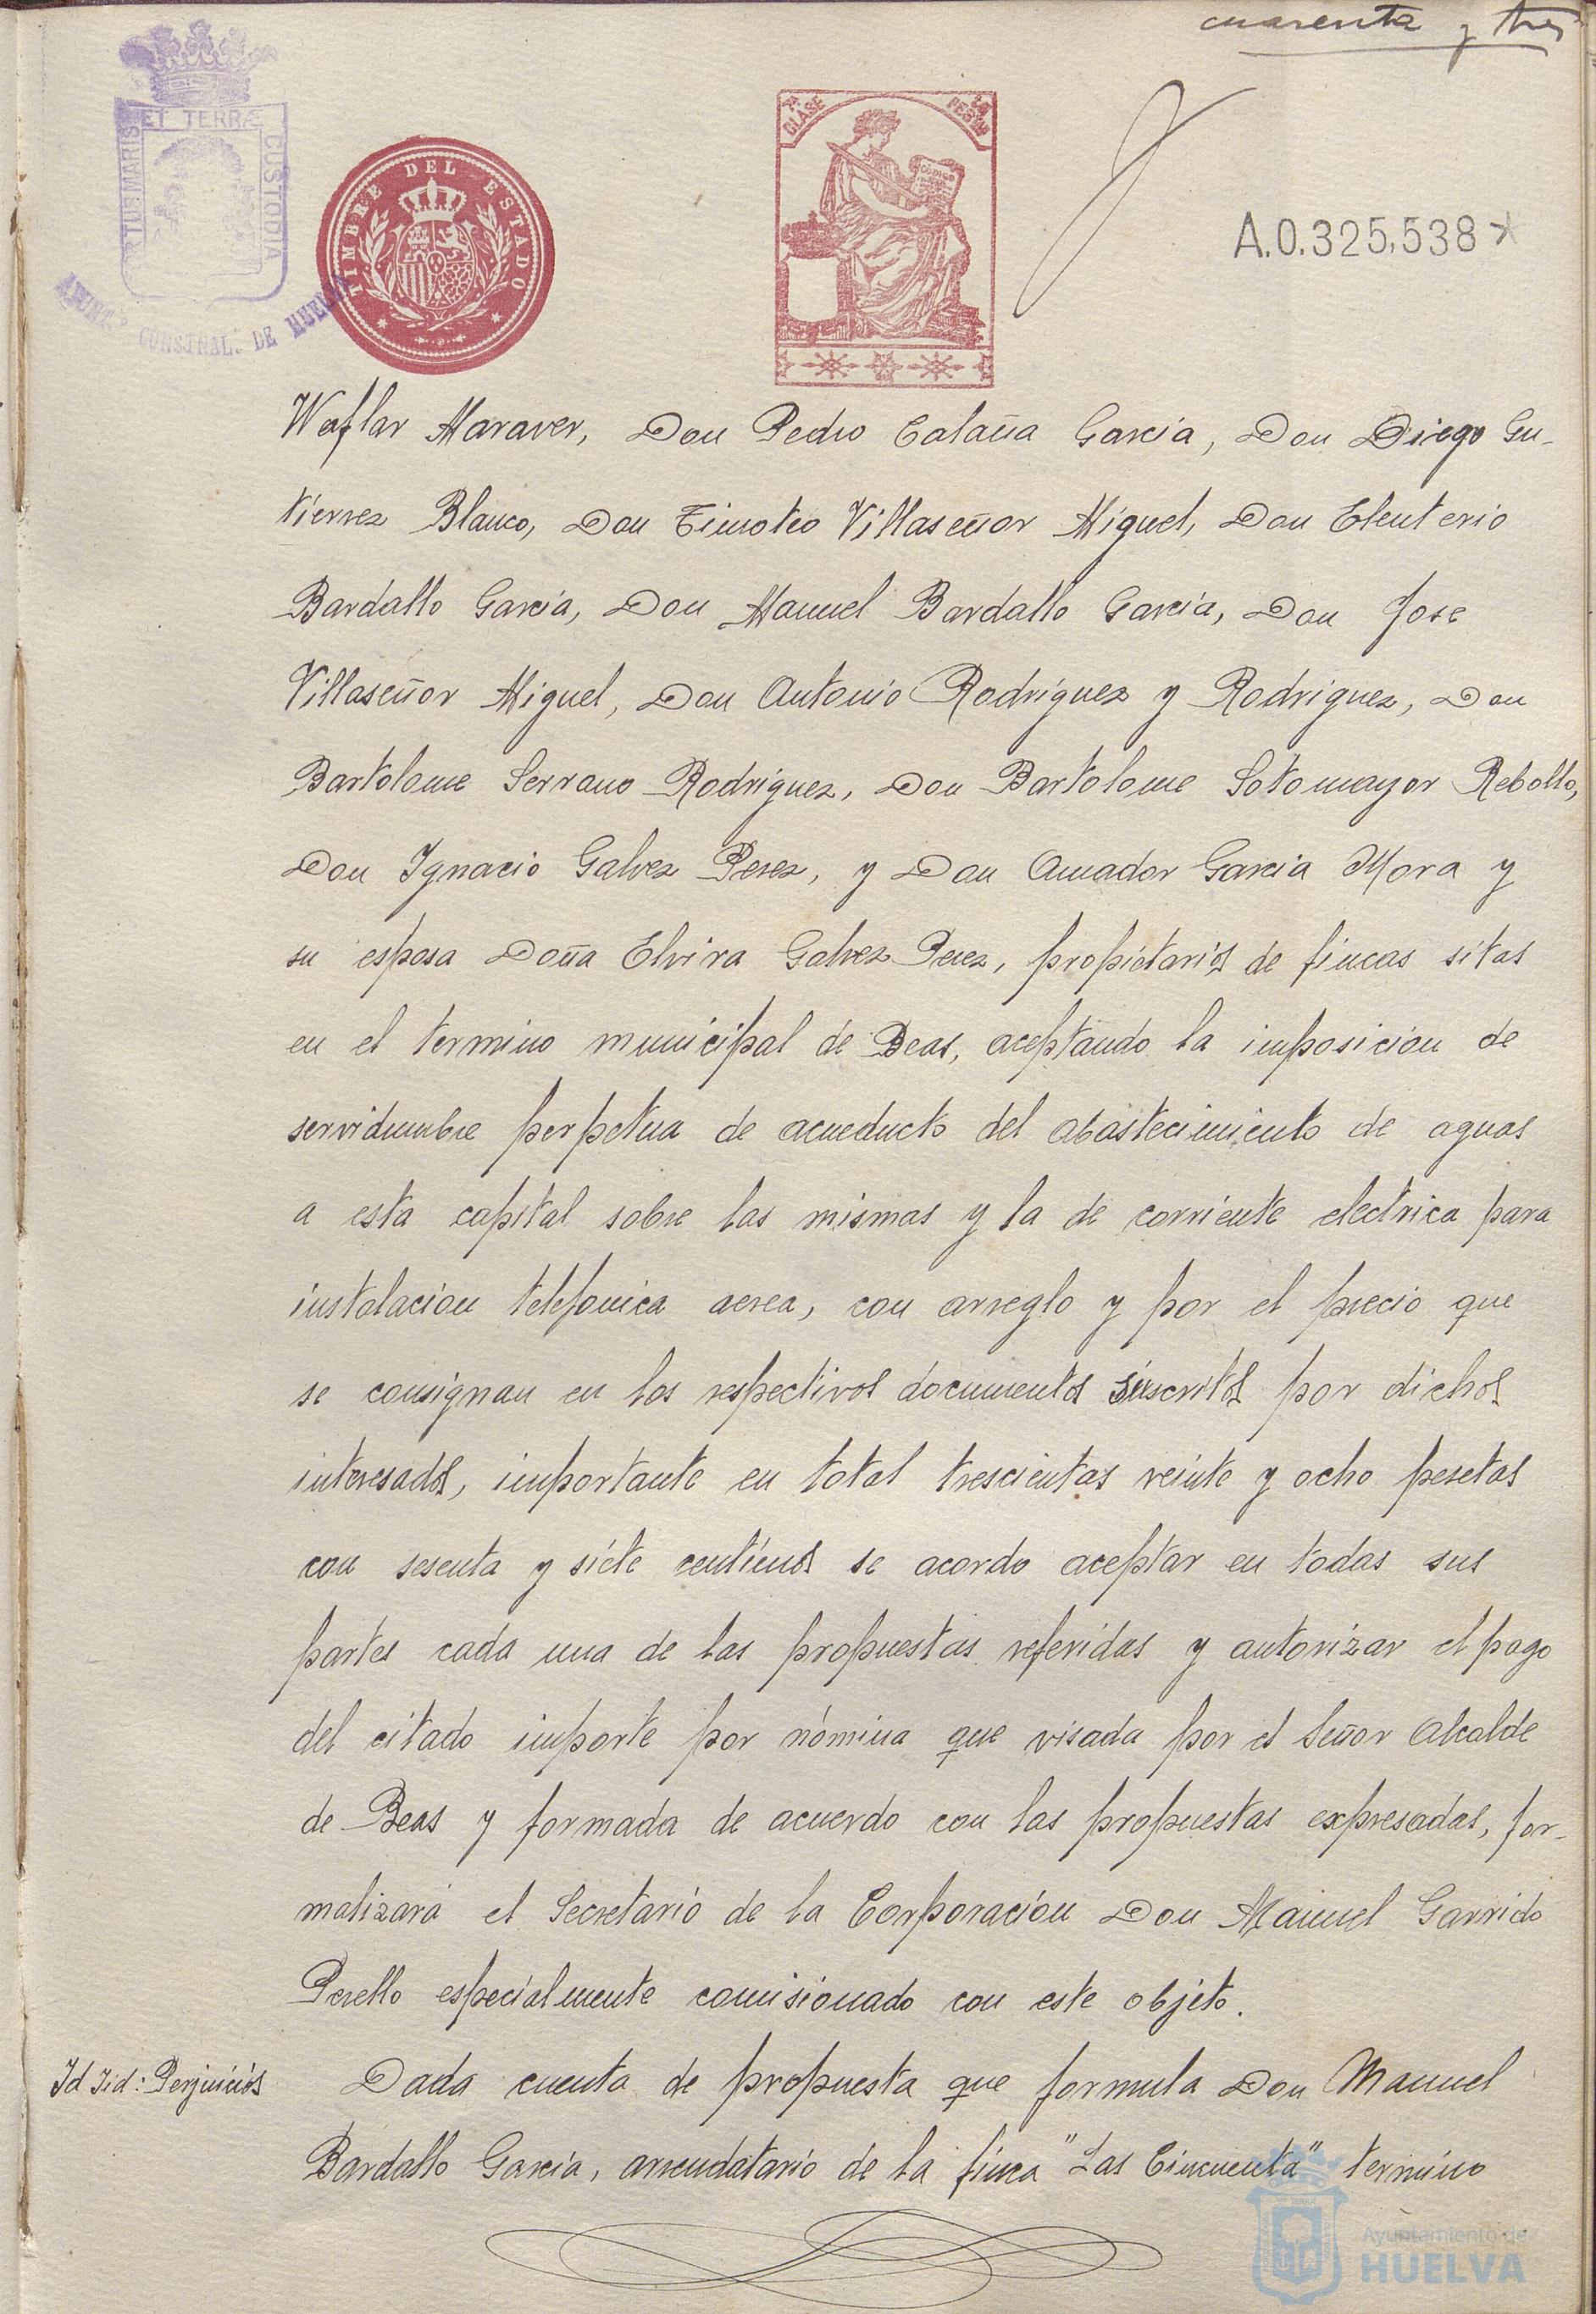 cuarenta y tres
ET TERRÆ
PORTUS MARIS
CUSTODIA
AYUNT.º CONSTNAL. DE HUELVA
TIMBRE DEL ESTADO
CLASE
CODIGO
A.0.325,538*
Waflar Maraver, Don Pedro Calaña Garcia, Don Diego Gu-
tierrez Blanco, Don Timoteo Villaseñor Miguel, Don Eleuterio
Bardallo Garcia, Don Manuel Bardallo Garcia, Don Jose
Villaseñor Miguel, Don Antonio Rodriguez y Rodriguez, Don
Bartolome Serrano Rodriguez, Don Bartolome Sotomayor Rebollo,
Don Ignacio Galvez Perez, y Don Amador Garcia Mora y
su esposa Doña Elvira Galvez Perez, propietarios de fincas sitas
en el termino municipal de Beas, aceptando la imposicion de
servidumbre perpetua de acueducto del abastecimiento de aguas
a esta capital sobre las mismas y la de corriente electrica para
instalacion telefonica aerea, con arreglo y por el precio que
se consignan en los respectivos documentos suscritos por dichos
interesados, importante en total trescientas veinte y ocho pesetas
con sesenta y siete centimos se acordo aceptar en todas sus
partes cada una de las propuestas referidas y autorizar el pago
del citado importe por nómina que visada por el Señor Alcalde
de Beas y formada de acuerdo con las propuestas expresadas, for-
malizará el Secretario de la Corporacion Don Manuel Garrido
Perello especialmente comisionado con este objeto.
Id Iid: Perjuicios
Dada cuenta de propuesta que formula Don Manuel
Bardallo Garcia, arrendatario de la finca "Las Cincuenta" termino
Ayuntamiento de
HUELVA